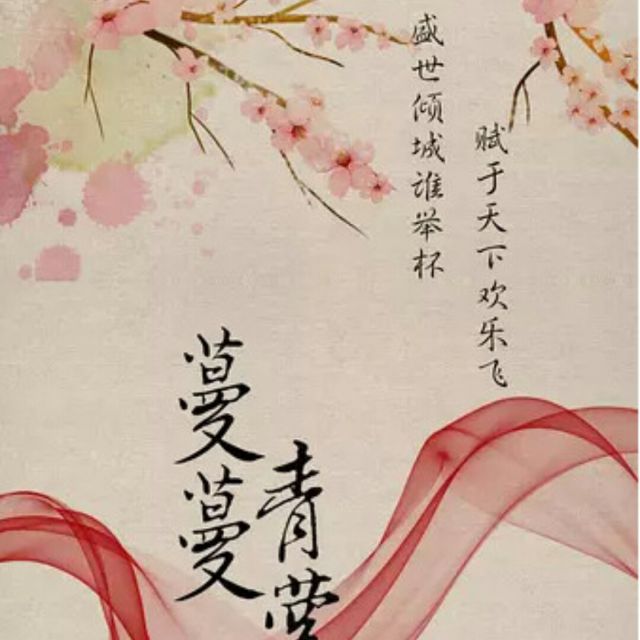 盛世倾城谁举杯
赋于天下欢乐飞
蔓蔓
青